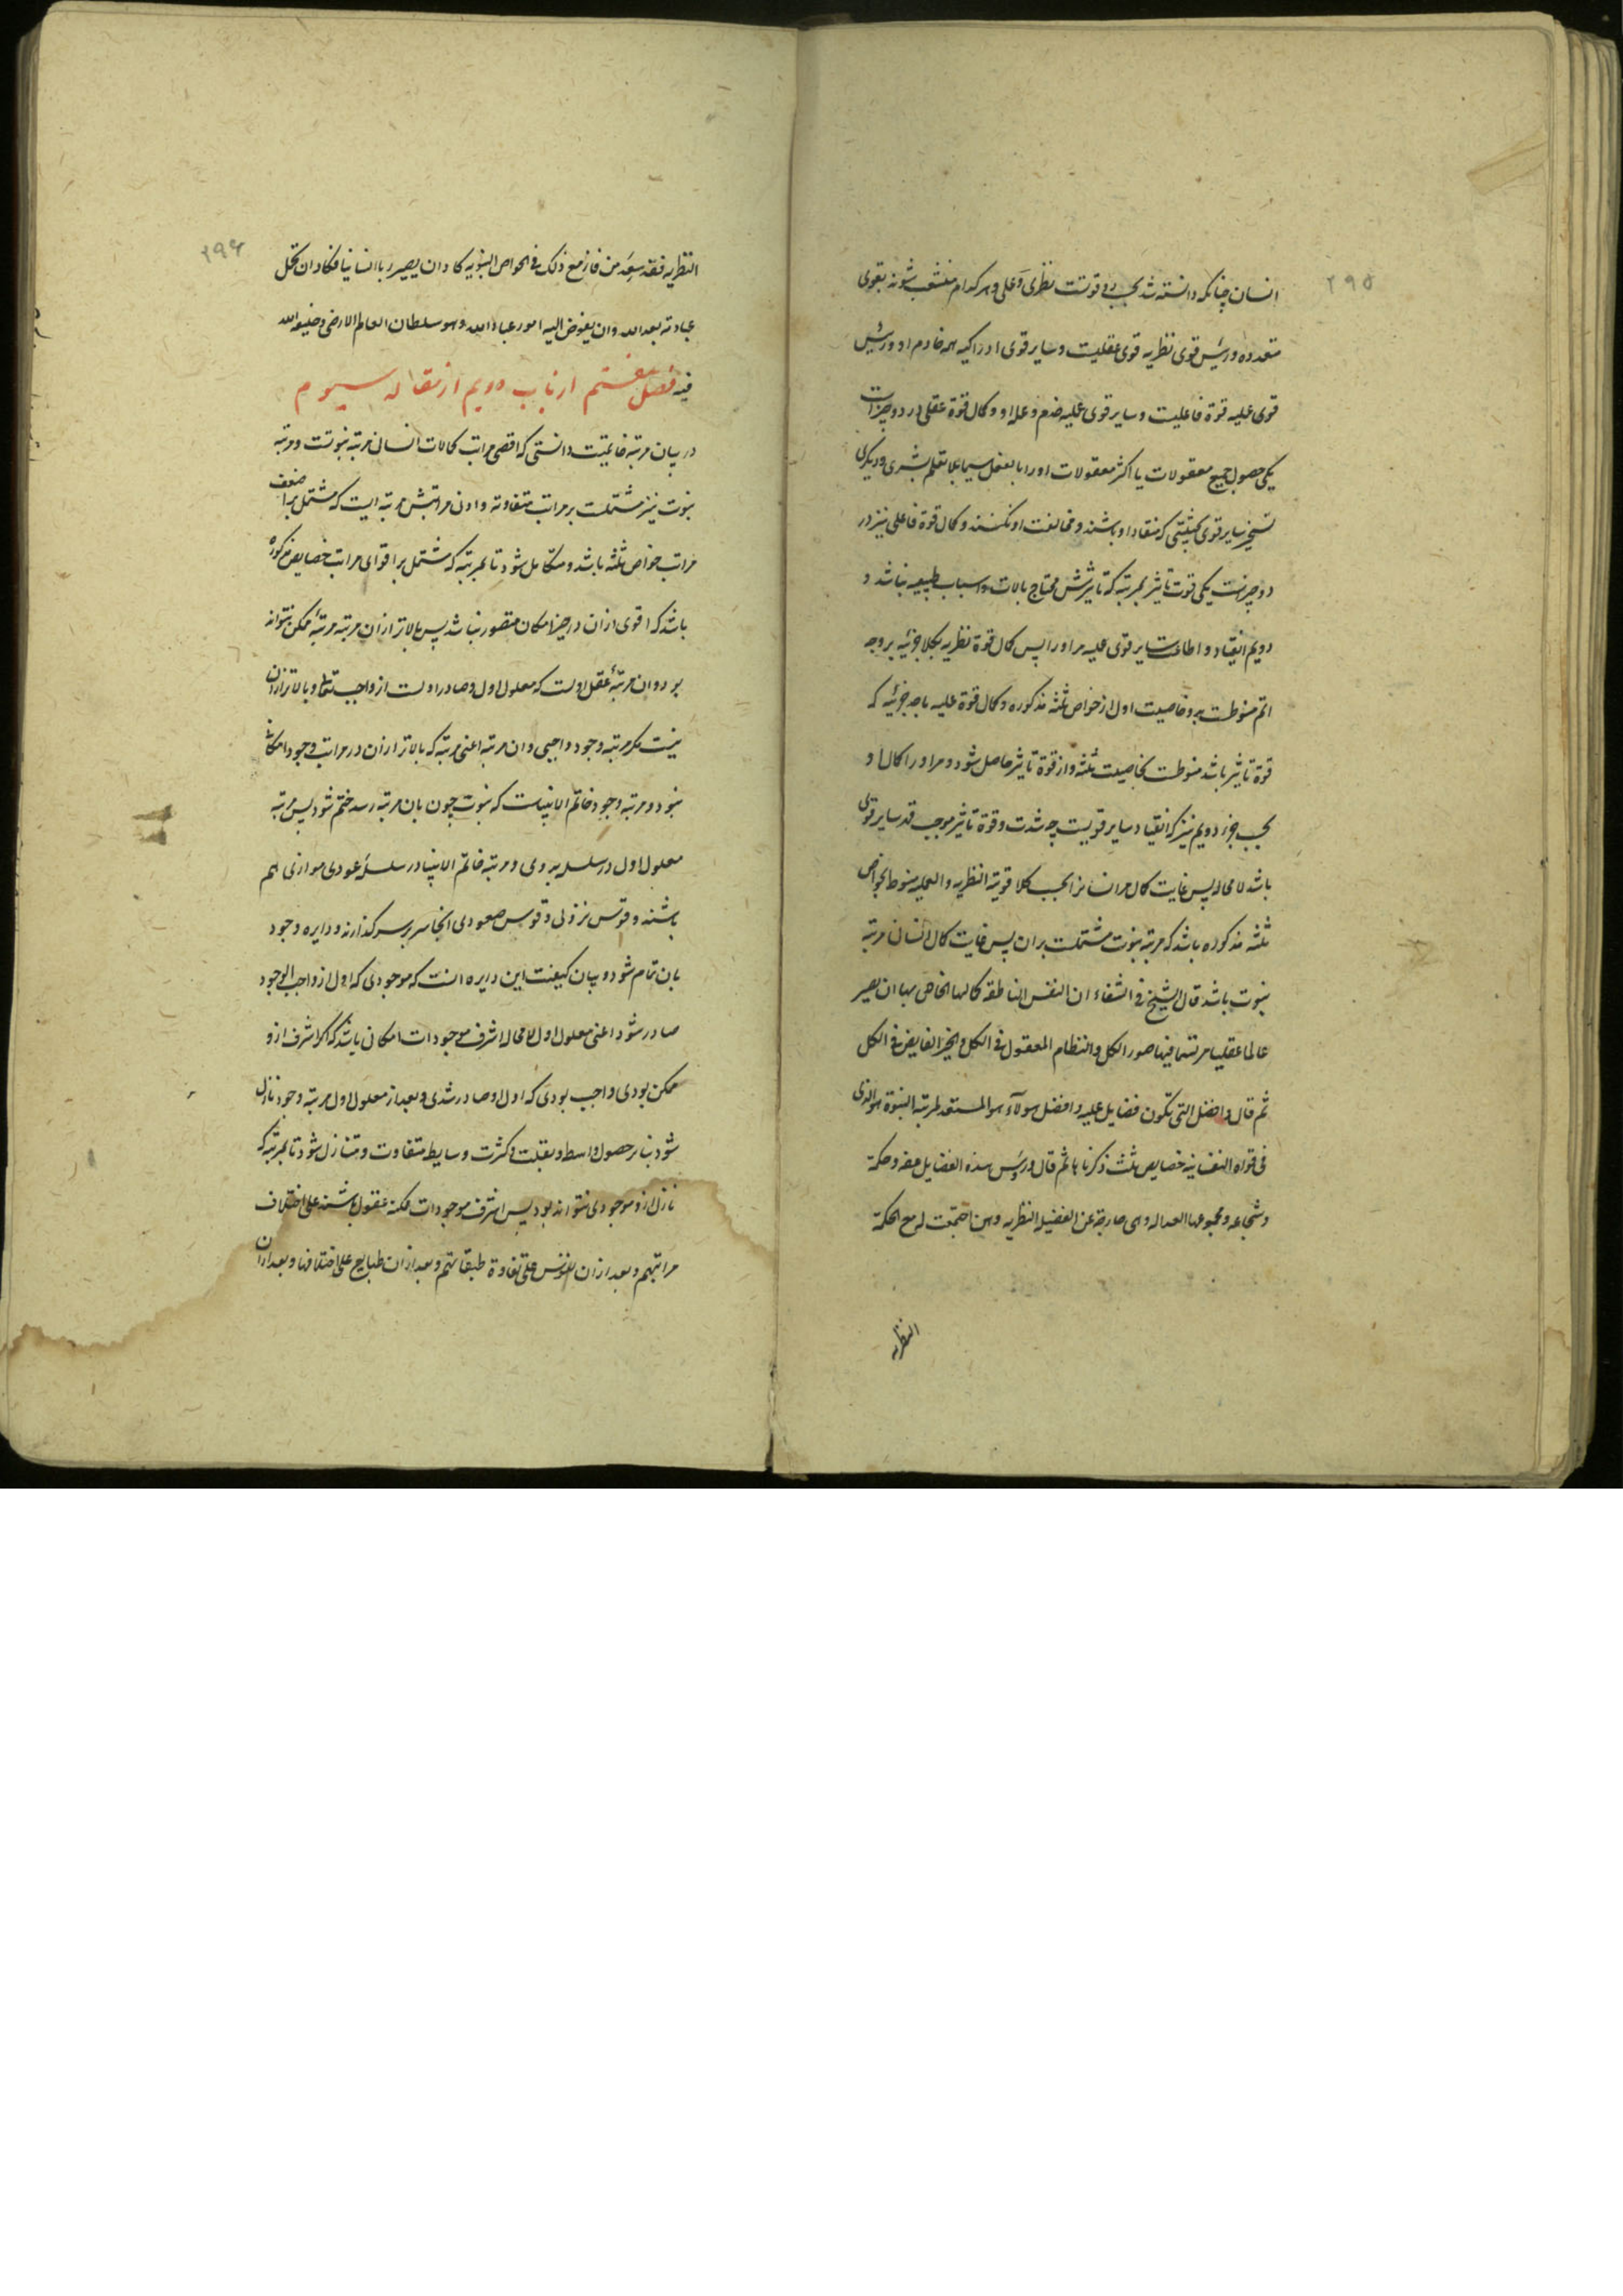 ۲۹۵
انسان چنانکه دانسته شد بحسب دو قوتست نظری و عملی و هر کدام منشعب شوند بقوی
متعدده و رئیس قوی نظریه قوی عقلیست و سایر قوی ادراکیه همه خادم او و رئیس
قوی عملیه قوة فاعلیست و سایر قوی عملیه خدم و عمله او و کمال قوة عقلی در دو چیز است
یکی حصول جمیع معقولات یا اکثر معقولات او را بالفعل سیما بلا تعلم بشری و دیگری
تسخیر سایر قوی بحیثیتی که منقاد او باشند و مخالفت او نکنند و کمال قوة فاعلی نیز در
دو چیزست یکی قوت تاثیر بمرتبه که تاثیرش محتاج بالات و اسباب طبیعیه نباشد و
دویم انقیاد و اطاعت سایر قوی عملیه مر او را پس کمال قوة نظریه بکلا جزئیه بر وجه
اتم منوطست بدو خاصیت اول از خواص ثلثه مذکوره و کمال قوة عملیه باحد جزئیه که
قوة تاثیر باشد منوطست بخاصیت ثلثه و از قوة تاثیر حاصل شود و مر او را کمال او
بحسب جزء دویم نیز که انقیاد سایر قویست چه شدت و قوة تاثیر موجب قد سایر قوی
باشد لا محاله پس غایت کمال مر انسانرا بحسب کلا قوتیه النظریه و العملیه منوط بخواص
ثلثه مذکوره باشد که مرتبه نبوت مشتملست بر ان پس غایت کمال انسانی مرتبه
نبوت باشد قال الشیخ فی الشفاء ان النفس الناطقه کمالها الخاص بها ان یصیر
عالما عقلیا مرتسما فیها صور الکل و النظام المعقول فی الکل و الخیر الفایض فی الکل
ثم قال و افضل التی تکون فضایل عملیه و افضل هولآء هو المستعد لمرتبه النبوة هو الذی
فی قواه النفسانیه خصایص ثلث ذکرناها ثم قال و رؤس هذه الفضایل عفه و حکمة
و شجاعه و مجموعها العداله و هی خارجة عن الفضیله النظریه و من اجتمعت له مع الحکمة
النظریه
۲۹۶
النظریه فقد سعد و من فاز مع ذلک فی الخواص النبویه کاد ان یصیر ربا انسانیا فکاد ان تحل
عبادته بعد الله و ان یفوض الیه امور عباد الله و هو سلطان العالم الارضی و خلیفه الله
فیه فصل هفتم از باب دویم از مقاله سیوم
در بیان مرتبه خاتمیت دانستی که اقصی مراتب کمالات انسانی مرتبه نبوتست و مرتبه
نبوت نیز مشتملست بر مراتب متفاوته و ادون مراتبش مرتبه ایست که مشتمل بر اضعف
مراتب خواص ثلثه باشد و متکامل شود تا بمرتبه که مشتمل بر اقوای مراتب خصایص مذکوره
باشد که اقوی از ان در حیز امکان متصور نباشد پس بالاتر از ان مرتبه مرتبهٔ ممکن نتواند
بود و ان مرتبهٔ عقل اولست که معلول اول و صادر اولست از واجب تعالی و بالاتر از ان
نیست مکر مرتبه وجود واجبی و ان مرتبه اعنی مرتبه که بالاتر از ان در مراتب وجود امکانی
نبود و مرتبه وجود خاتم الانبیاست که نبوت چون بان مرتبه رسد ختم شود پس مرتبه
معلول اول در سلسله بدوی و مرتبه خاتم الانبیا در سلسلهٔ عودی موازی هم
باشند و قوس نزولی و قوس صعودی انجا سر بر سر کذارند و دایره وجود
بان تمام شود و بیان کیفیت این دایره انست که موجودی که اول از واجب الوجود
صادر شود اعنی معلول اول لا محاله اشرف موجودات امکانی باشد که اکر اشرف ازو
ممکن بودی واجب بودی که اول او صادر شدی و بعد از معلول اول مرتبه وجود نازل
شود بنابر حصول واسطه و بقلت و کثرت وسایط متفاوت و متنازل شود تا بمرتبه که
نازل ازو موجودی نتواند بود پس اشرف موجودات ممکنه عقول باشند علی اختلاف
مراتبهم و بعد از ان نفوس علی تفاوة طبقاتهم و بعد از ان طبایع علی اختلافها و بعد از ان